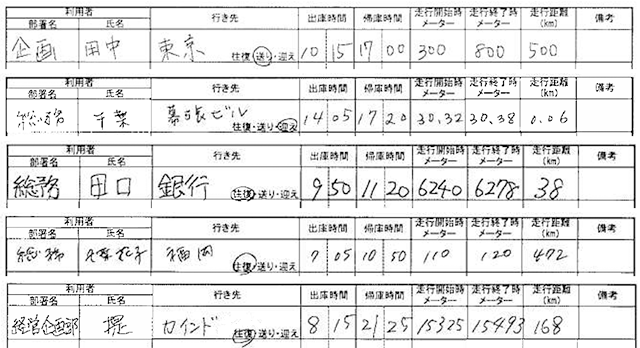 利用者 行き先 出庫時間 帰庫時間 走行開始時メーター 走行終了時メーター 走行距離(km) 備考
部署名 氏名
企画 田中 東京 往復・送り・迎え 10 15 17 00 300 800 500
利用者 行き先 出庫時間 帰庫時間 走行開始時メーター 走行終了時メーター 走行距離(km) 備考
部署名 氏名
総務 千葉 幕張ビル 往復・送り・迎え 14 05 17 20 30.32 30.38 0.06
利用者 行き先 出庫時間 帰庫時間 走行開始時メーター 走行終了時メーター 走行距離(km) 備考
部署名 氏名
総務 田口 銀行 往復・送り・迎え 9 50 11 20 6240 6278 38
利用者 行き先 出庫時間 帰庫時間 走行開始時メーター 走行終了時メーター 走行距離(km) 備考
部署名 氏名
総務 福岡 往復・送り・迎え 7 05 10 50 110 120 472
利用者 行き先 出庫時間 帰庫時間 走行開始時メーター 走行終了時メーター 走行距離(km) 備考
部署名 氏名
経営企画部 堤 カインド 往復・送り・迎え 8 15 21 25 15325 15493 168